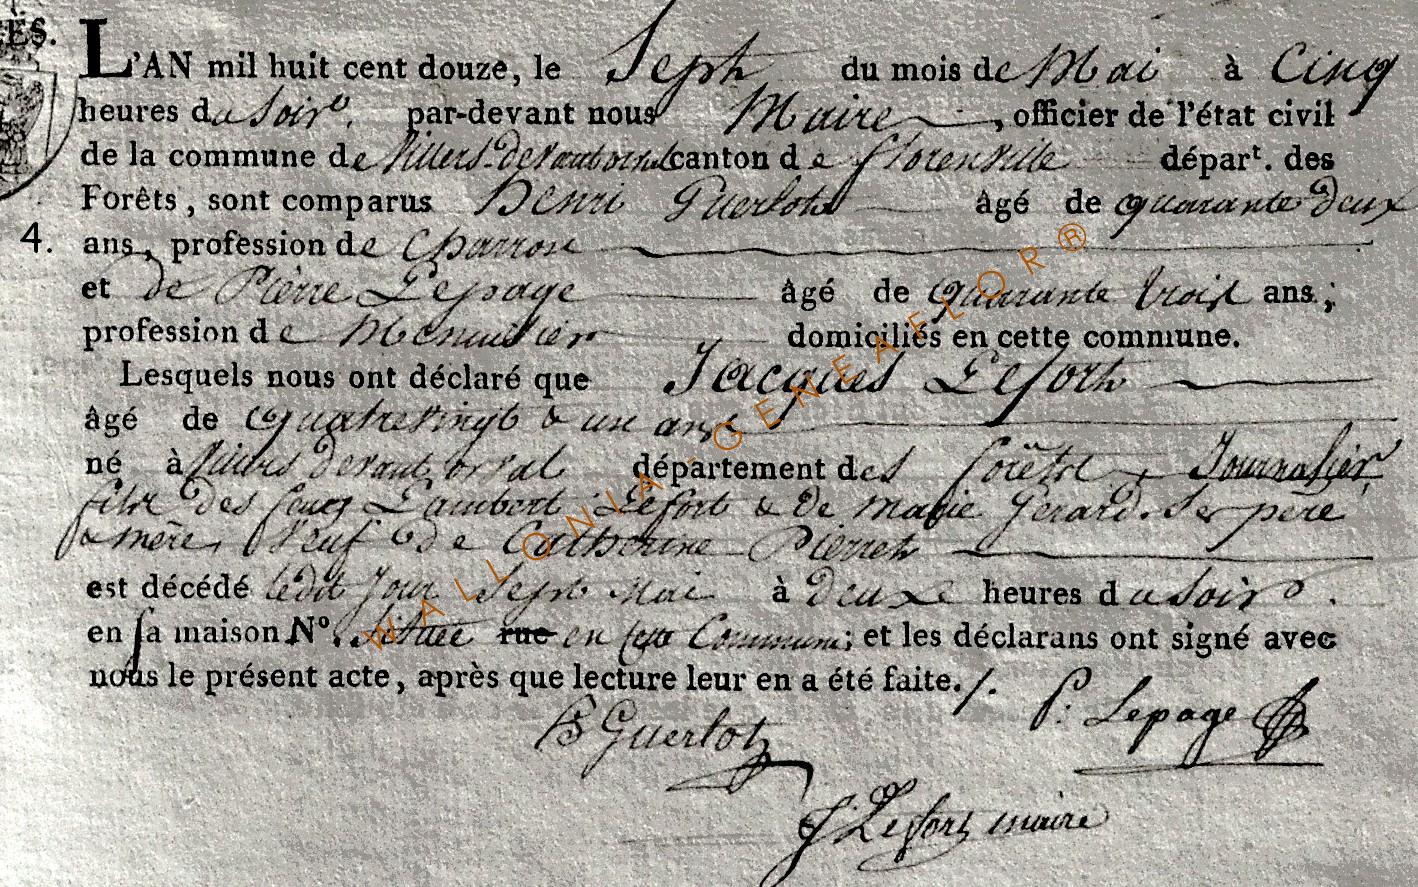 ÉS.
L'AN mil huit cent douze, le Sept du mois de Mai à Cinq
heures du Soir, par-devant nous Maire, officier de l'état civil
de la commune de Villers-devantorval canton de florenville départ. des
Forêts, sont comparus Henri Guerlot âgé de quarante deux
4. ans, profession de Charron
et de Pierre Lepage âgé de quarante trois ans;
profession de Menuisier domiciliés en cette commune.
Lesquels nous ont déclaré que Jacques Lefort
âgé de quatrevingt & un ans
né à Villers devant orval département des forêts, Journalier,
fils des feux Lambert Lefort & de marie Gerard. Ses père
& mère, Veuf de Catherine Pierret
est décédé ledit Jour Sept Mai à deux heures du Soir.
en sa maison N°. située rue en cette Commune; et les déclarans ont signé avec
nous le présent acte, après que lecture leur en a été faite./.
P: Lepage
H Guerlot
J Lefort maire
WALLONIA-GENEAFLOR®